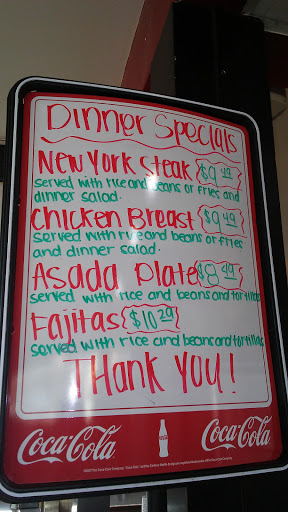 Dinner Specials
New York Steak $9.49
served with rice and beans or fries and
dinner salad.
Chicken Breast $9.49
served with rice and beans or fries
and dinner salad.
Asada Plate $8.49
served with rice and beans and tortillas
Fajitas $10.29
served with rice and beans and tortillas
THank YOU!
Coca-Cola Coca-Cola